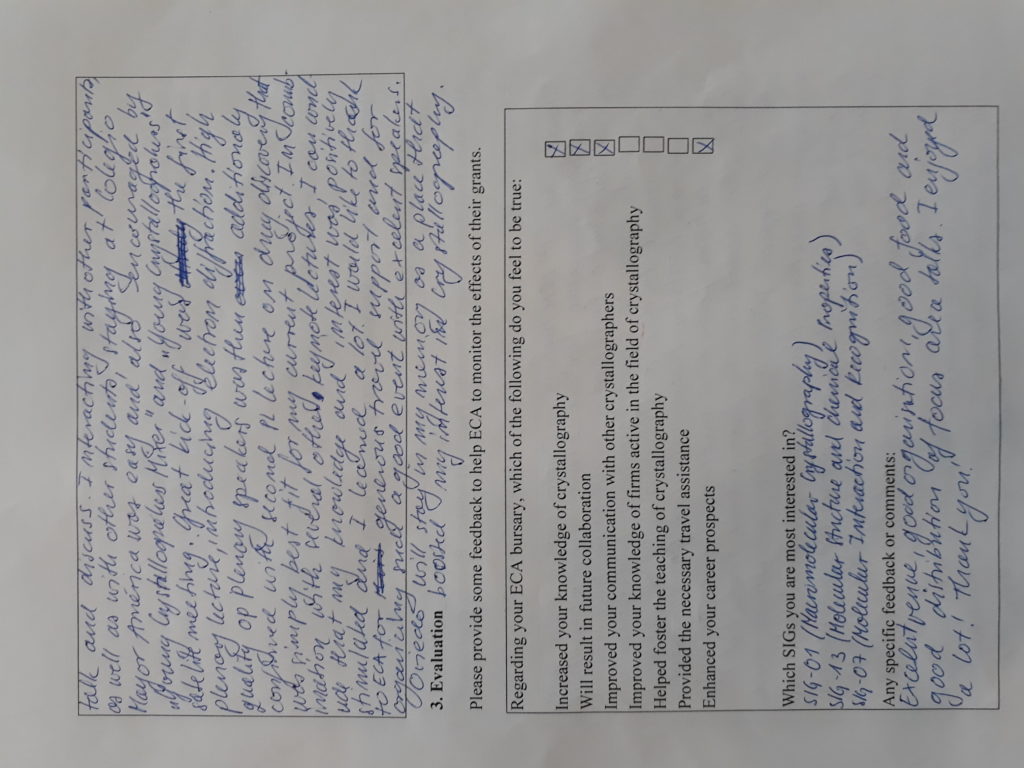 talk and discuss. Interacting with other participants,
as well as with other students, staying at Colegio
Mayor América was easy and also encouraged by
"Young Crystallographers Mixer" and "Young Crystallographers"
satellite meeting. Great kick-off was the first
plenary lecture, introducing Electron diffraction. High
quality of plenary speakers was then additionaly
confirmed with second PL lecture on drug discovery that
was simply best fit for my current project. In comb-
ination with several other keynote lectures, I can conclude
that my knowledge and interest was positively
stimulated and I learned a lot. I would like to thank
to ECA for generous travel support and for
organizing such a good event with excelent speakers.
Oviedo will stay in my memory as a place that
boosted my interest into crystallography.
3. Evaluation
Please provide some feedback to help ECA to monitor the effects of their grants.
Regarding your ECA bursary, which of the following do you feel to be true:
Increased your knowledge of crystallography ☒
Will result in future collaboration ☒
Improved your communication with other crystallographers ☒
Improved your knowledge of firms active in the field of crystallography ☐
Helped foster the teaching of crystallography ☐
Provided the necessary travel assistance ☐
Enhanced your career prospects ☒
Which SIGs you are most interested in?
SIG-01 (Macromolecular Crystallography)
SIG-13 (Molecular Structure and Chemical Properties)
SIG-07 (Molecular Interaction and Recognition)
Any specific feedback or comments:
Excelent venue, good organisation, good food and
good distribution of focus area talks. I enjoyed
a lot! Thank you!